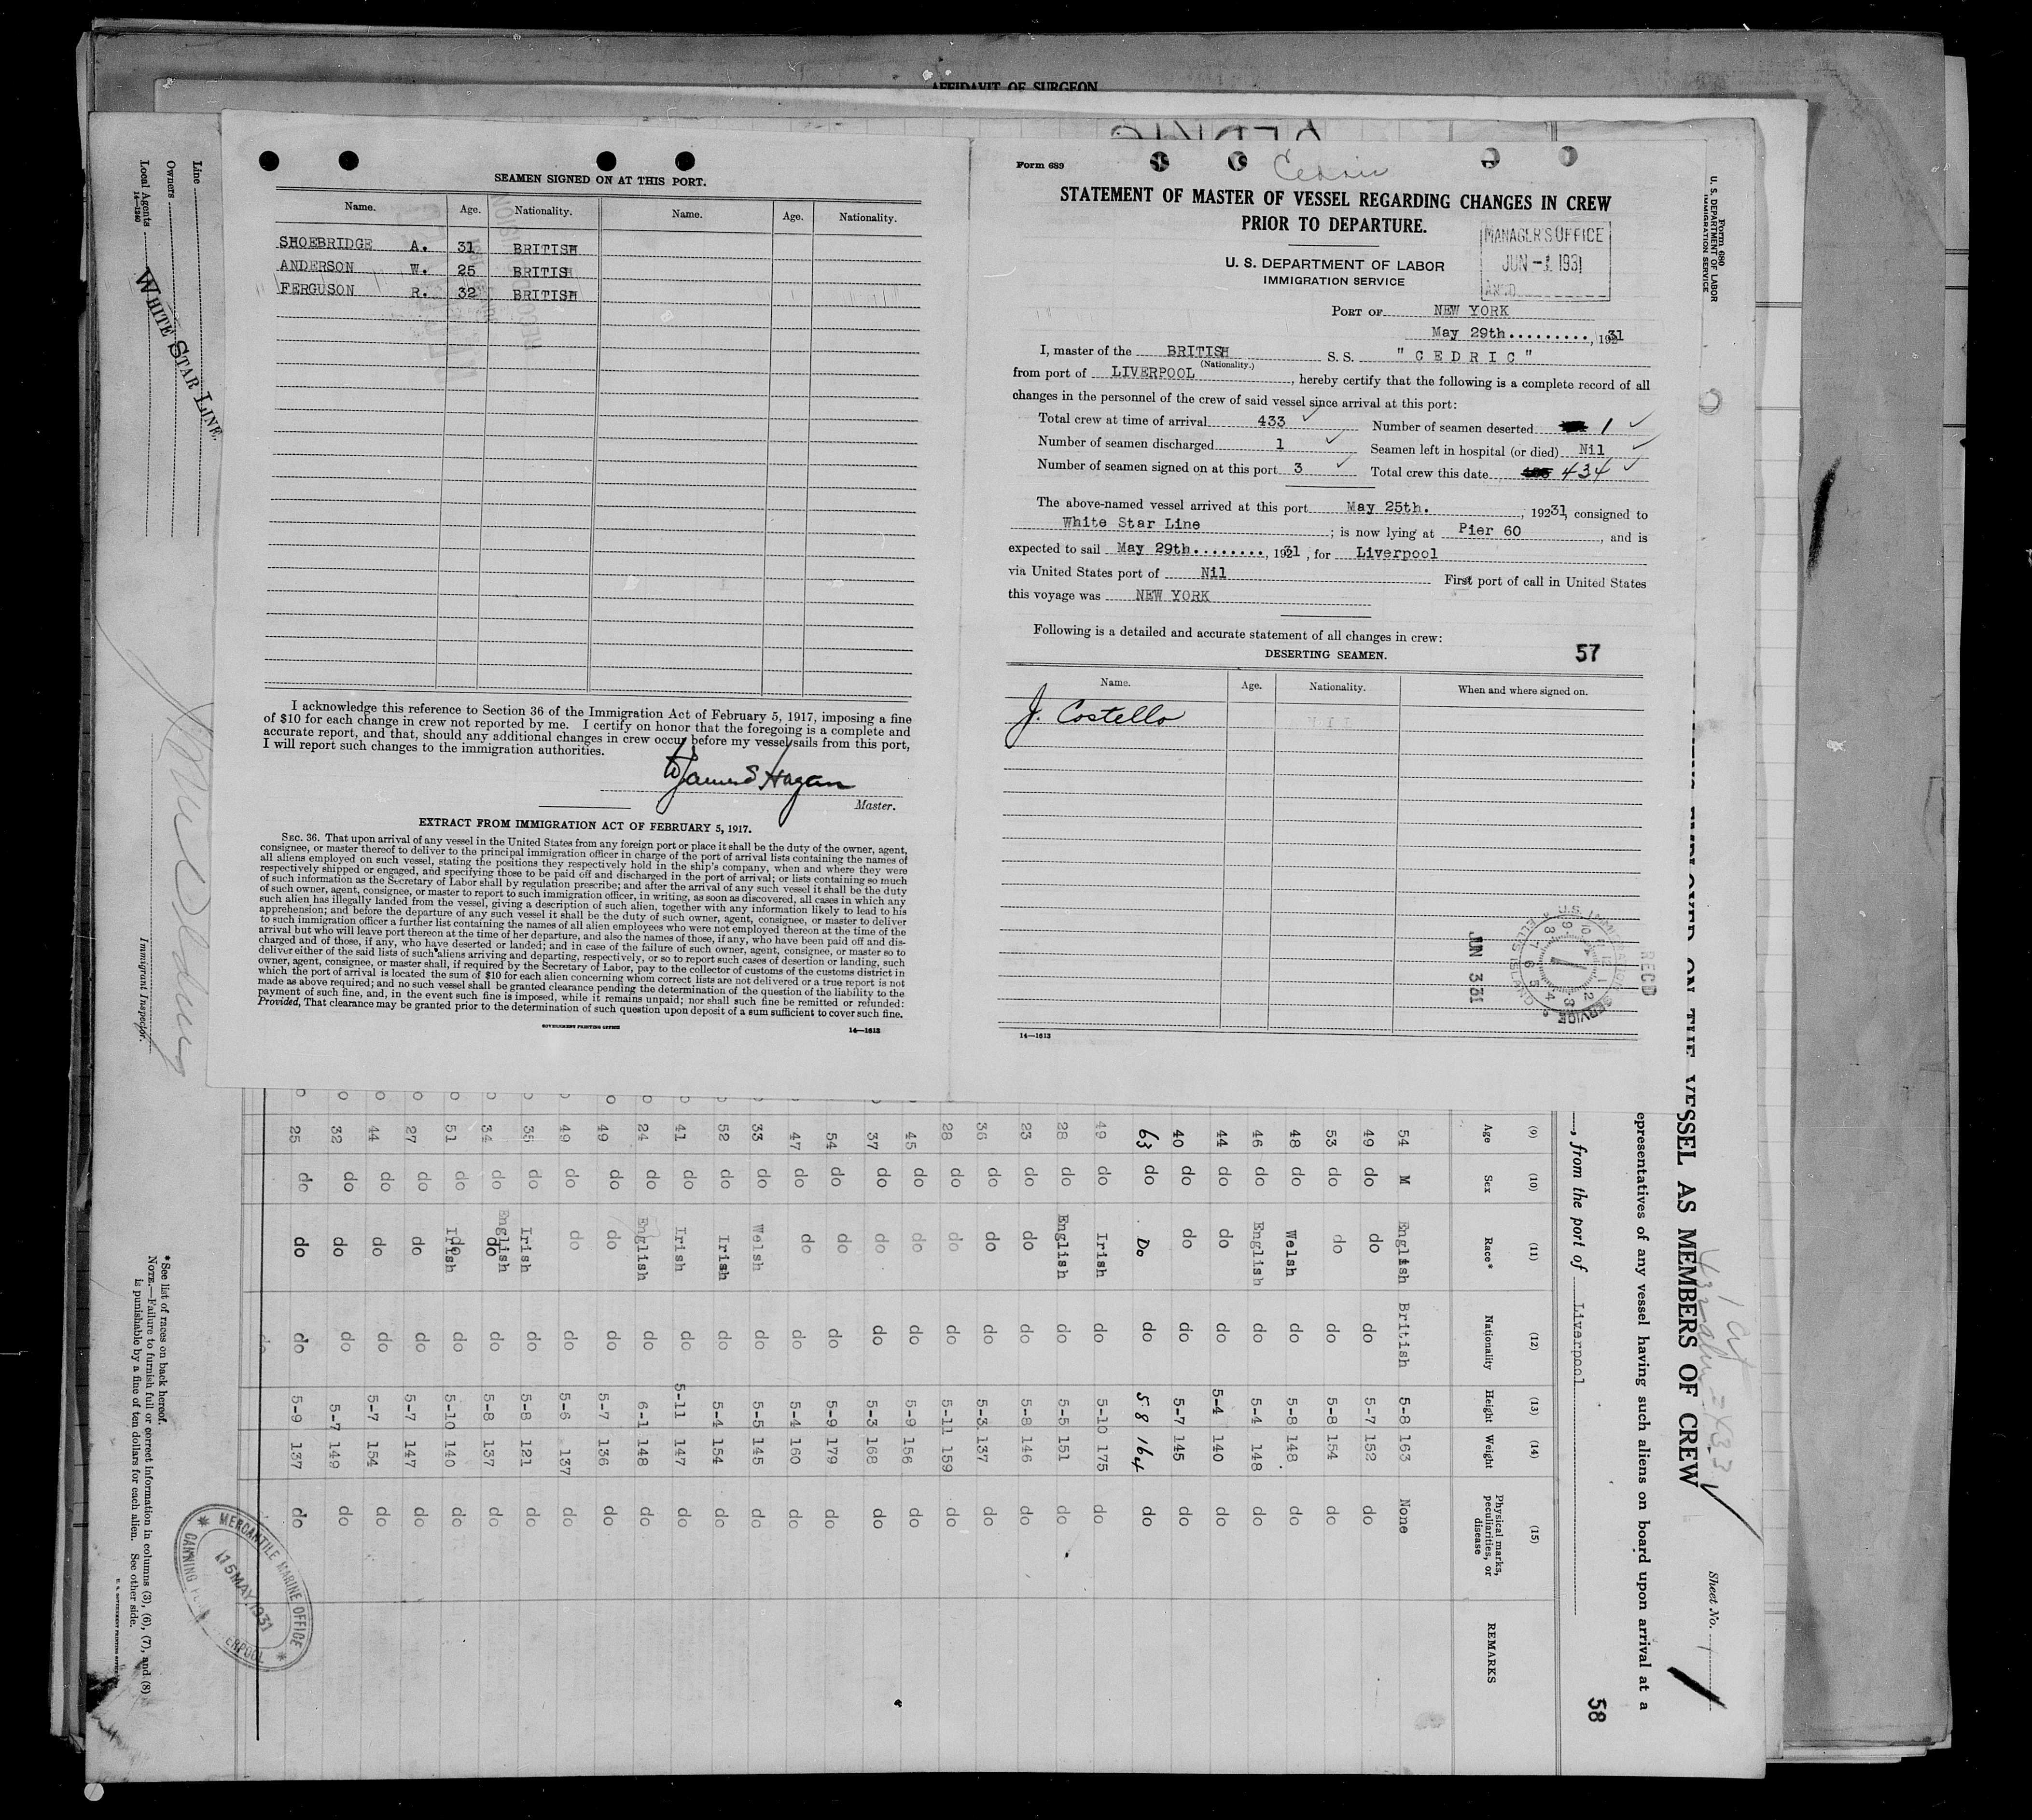 AFFIDAVIT OF SURGEON
SEAMEN SIGNED ON AT THIS PORT.
Name. Age. Nationality. Name. Age. Nationality.
SHOEBRIDGE A. 31 BRITISH
ANDERSON W. 25 BRITISH
FERGUSON R. 32 BRITISH
I acknowledge this reference to Section 36 of the Immigration Act of February 5, 1917, imposing a fine
of $10 for each change in crew not reported by me. I certify on honor that the foregoing is a complete and
accurate report, and that, should any additional changes in crew occur before my vessel sails from this port,
I will report such changes to the immigration authorities.
James Hagan
Master.
EXTRACT FROM IMMIGRATION ACT OF FEBRUARY 5, 1917.
SEC. 36. That upon arrival of any vessel in the United States from any foreign port or place it shall be the duty of the owner, agent,
consignee, or master thereof to deliver to the principal immigration officer in charge of the port of arrival lists containing the names of
all aliens employed on such vessel, stating the positions they respectively hold in the ship's company, when and where they were
respectively shipped or engaged, and specifying those to be paid off and discharged in the port of arrival; or lists containing so much
of such information as the Secretary of Labor shall by regulation prescribe; and after the arrival of any such vessel it shall be the duty
of such owner, agent, consignee, or master to report to such immigration officer, in writing, as soon as discovered, all cases in which any
such alien has illegally landed from the vessel, giving a description of such alien, together with any information likely to lead to his
apprehension; and before the departure of any such vessel it shall be the duty of such owner, agent, consignee, or master to deliver
to such immigration officer a further list containing the names of all alien employees who were not employed thereon at the time of the
arrival but who will leave port thereon at the time of her departure, and also the names of those, if any, who have been paid off and dis-
charged and of those, if any, who have deserted or landed; and in case of the failure of such owner, agent, consignee, or master so to
deliver either of the said lists of such aliens arriving and departing, respectively, or so to report such cases of desertion or landing, such
owner, agent, consignee, or master shall, if required by the Secretary of Labor, pay to the collector of customs of the customs district in
which the port of arrival is located the sum of $10 for each alien concerning whom correct lists are not delivered or a true report is not
made as above required; and no such vessel shall be granted clearance pending the determination of the question of the liability to the
payment of such fine, and, in the event such fine is imposed, while it remains unpaid; nor shall such fine be remitted or refunded:
Provided, That clearance may be granted prior to the determination of such question upon deposit of a sum sufficient to cover such fine.
GOVERNMENT PRINTING OFFICE 14—1613
Form 689
Cedric
STATEMENT OF MASTER OF VESSEL REGARDING CHANGES IN CREW
PRIOR TO DEPARTURE.
U. S. DEPARTMENT OF LABOR
IMMIGRATION SERVICE
MANAGER'S OFFICE
JUN - 1931
ANS'D
PORT OF NEW YORK
May 29th.........., 1931
I, master of the BRITISH S. S. " C E D R I C "
(Nationality.)
from port of LIVERPOOL, hereby certify that the following is a complete record of all
changes in the personnel of the crew of said vessel since arrival at this port:
Total crew at time of arrival 433 Number of seamen deserted 1
Number of seamen discharged 1 Seamen left in hospital (or died) Nil
Number of seamen signed on at this port 3 Total crew this date 434
The above-named vessel arrived at this port May 25th., 19231, consigned to
White Star Line; is now lying at Pier 60, and is
expected to sail May 29th........, 1931, for Liverpool
via United States port of Nil First port of call in United States
this voyage was NEW YORK
Following is a detailed and accurate statement of all changes in crew:
DESERTING SEAMEN. 57
Name. Age. Nationality. When and where signed on.
J. Costello
JUN 3 31
U.S. IMMIGRATION SERVICE ELLIS ISLAND
REC'D
14—1613
Form 680
U. S. DEPARTMENT OF LABOR
IMMIGRATION SERVICE
ON THE VESSEL AS MEMBERS OF CREW
Sheet No. 1
epresentatives of any vessel having such aliens on board upon arrival at a
, from the port of Liverpool
58
(9) (10) (11) (12) (13) (14) (15)
Age Sex Race* Nationality Height Weight Physical marks, peculiarities, or disease REMARKS
54 M English British 5-8 163 None
49 do do do 5-7 152 do
53 do do do 5-8 154 do
48 do Welsh do 5-8 148 do
46 do English do 5-4 148 do
44 do do do 5-4 140 do
40 do do do 5-7 145 do
63 do Do do 5 8 164 do
49 do Irish do 5-10 175 do
28 do English do 5-5 151 do
23 do do do 5-8 146 do
36 do do do 5-3 137 do
28 do do do 5-11 159 do
45 do do do 5-9 156 do
37 do do do 5-3 168 do
54 do do do 5-9 179 do
47 do do do 5-4 160 do
33 do Welsh do 5-5 145 do
52 do Irish do 5-4 154 do
41 do Irish do 5-11 147 do
24 do English do 6-1 148 do
49 do do do 5-7 136 do
49 do do do 5-6 137 do
35 do Irish do 5-8 121 do
34 do English do 5-8 137 do
51 do Irish do 5-10 140 do
27 do do do 5-7 147 do
44 do do do 5-7 154 do
32 do do do 5-7 149 do
25 do do do 5-9 137 do
Line
WHITE STAR LINE.
Owners
Local Agents
14—1240
Immigrant Inspector.
*See list of races on back hereof.
NOTE.—Failure to furnish full or correct information in columns (3), (6), (7), and (8)
is punishable by a fine of ten dollars for each alien. See other side.
MERCANTILE MARINE OFFICE
15 MAY 1931
CANNING
ERPOOL